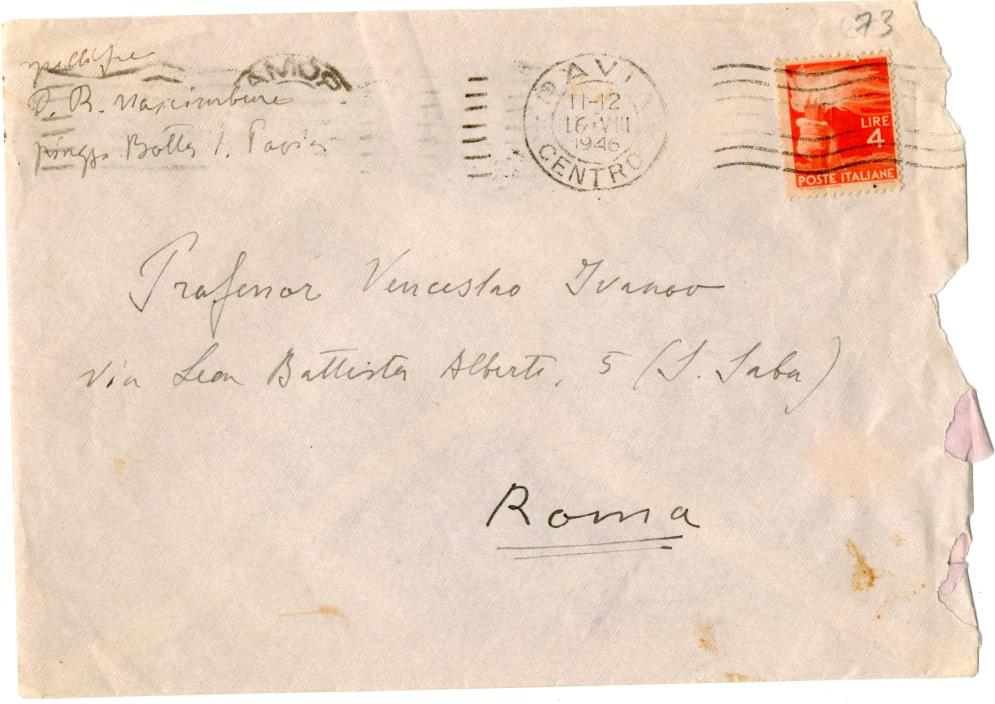 73
O. R. Nascimbene
piazza Botta 1. Pavia
PAVIA
11-12
16·VIII
1946
CENTRO
LIRE
4
POSTE ITALIANE
Professor Venceslao Ivanov
via Leon Battista Alberti, 5 (S. Saba)
Roma